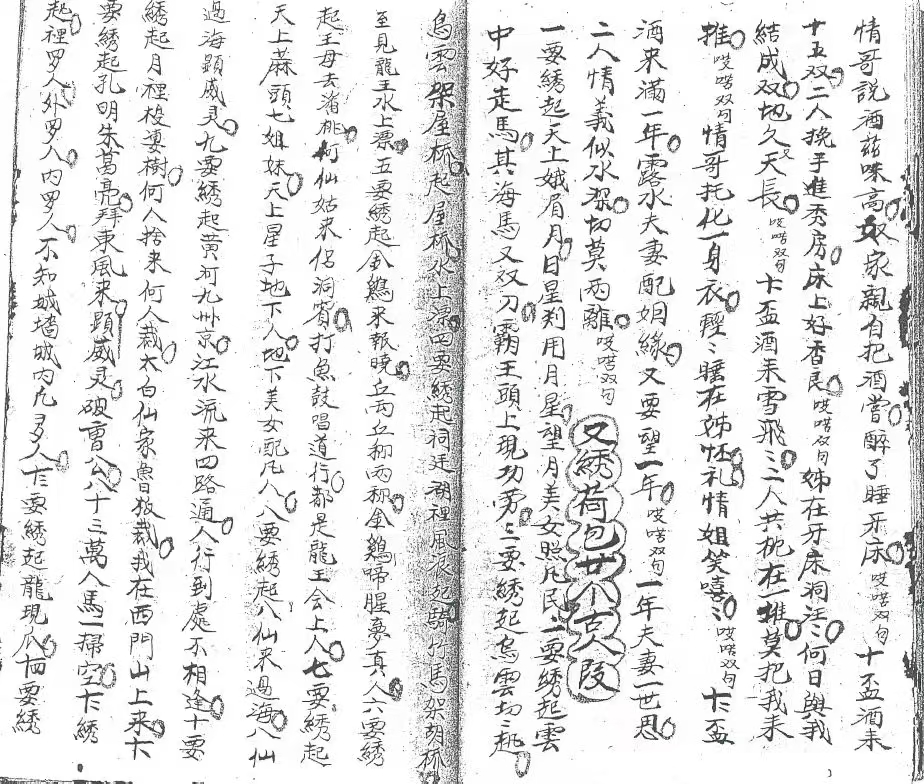 情哥說酒茲味高奴家親自把酒嘗醉了睡牙床哎喏双句十盃酒來
十五双二人挽手進秀房床上好香良哎喏双句姊在牙床洞汪〻何日與我
結成双地久天長哎喏双句十盃酒來雪飛〻二人共枕在一推莫把我來
推哎喏双句情哥托化一身衣輕〻睡在姊怀礼情姐笑嘻〻哎喏双句十盃
酒來滿一年露水夫妻配姻緣又要望一年哎喏双句一年夫妻一世恩
二人情義似水深切莫兩離哎喏双句
又綉荷包廿个古人段
一要綉起天上娥眉月日星刹用月星望月美女照凡民二要綉起雲
中好走馬其海馬又双刀霸王頭上現功劳三要綉起烏雲切〻起
烏雲架屋桥起屋桥水上漂四要綉起祠廷湖裡風夜死騎竹馬架胡桥
至見龍王水上漂五要綉起金鷄來報曉丘両丘称両称金鷄啼腥夢真人六要綉
起王母去海桃何仙姑來侣洞賓打魚鼓唱道行都是龍王会上人七要綉起
天上蔴頭七姐妹天上星子地下人地下美女配凡人八要綉起八仙來過海八仙
過海顕威灵九要綉起黄河九州京江水流來四路通人行到處不相逢十要
綉起月裡梭婆樹何人捨來何人裁太白仙家魯板裁我在西門山上來十
要綉起孔明朱葛亮拜東風來顕威灵破曹公八十三萬人馬一掃空十綉
起裡罗人外罗人内罗人不知城墻城内九多人十三要綉起龍現爪十四要綉